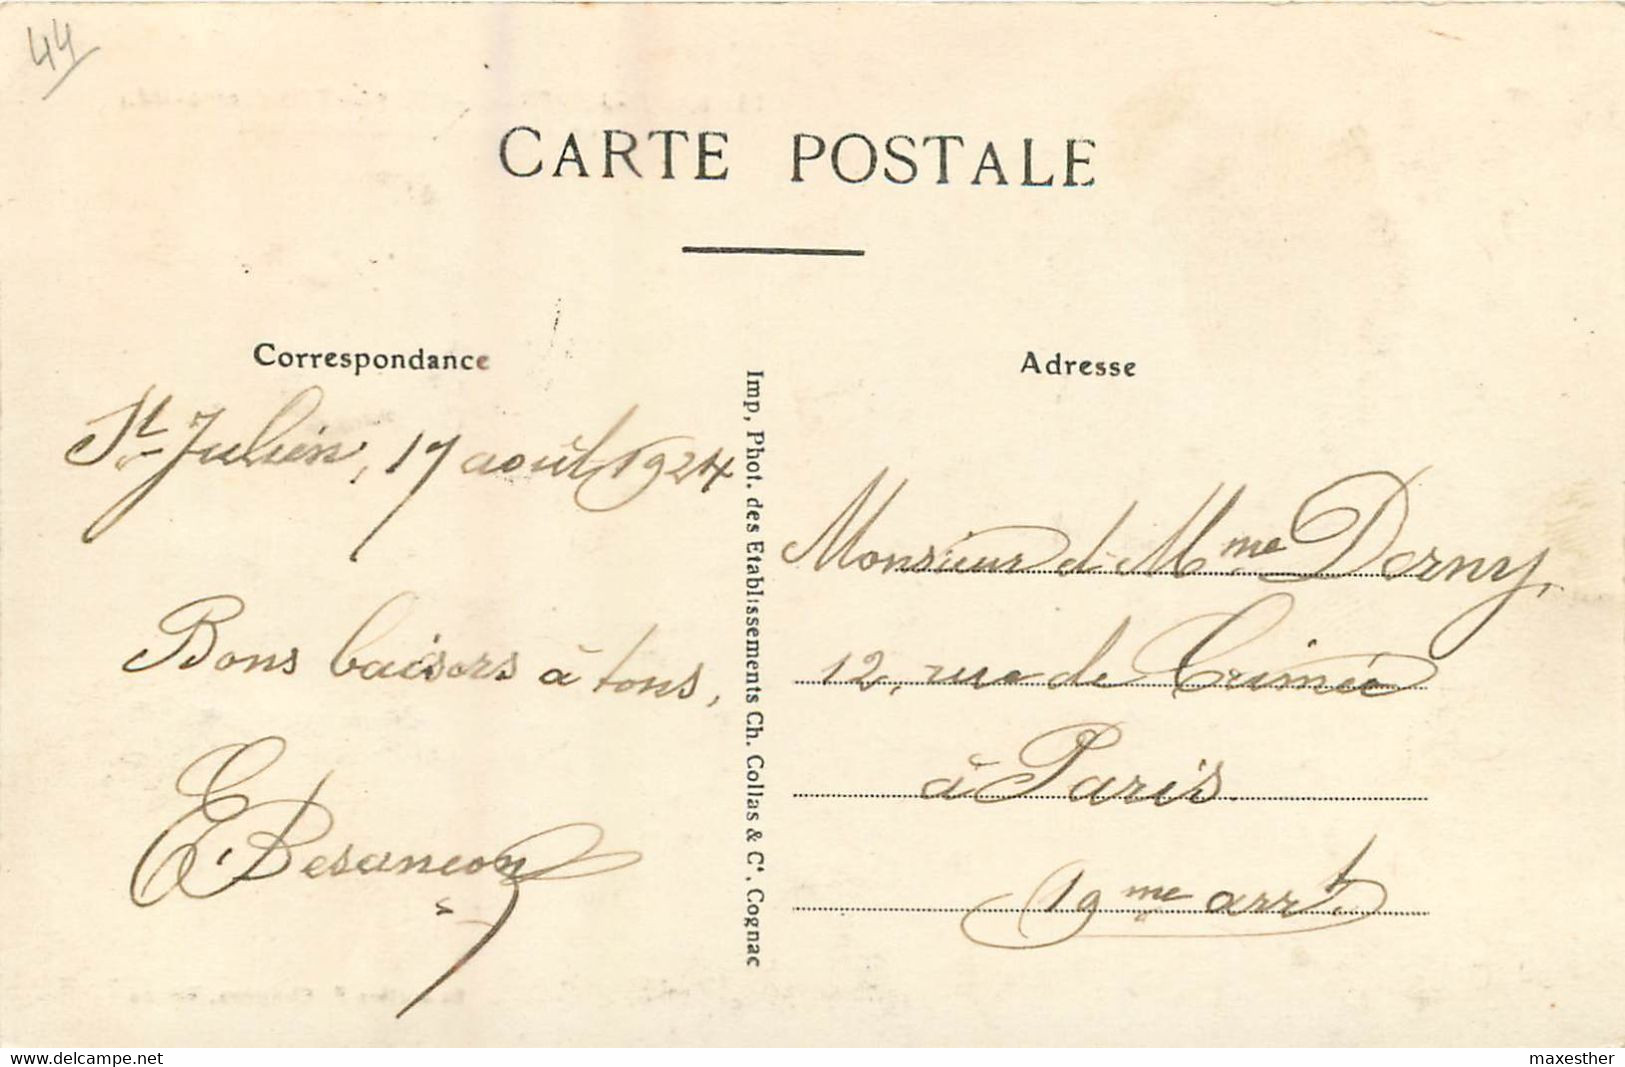 44
CARTE POSTALE
Correspondance
St-Julien, 17 août 1924
Bons baisers à tous,
E. Besançon
Imp. Phot. des Etablissements Ch. Collas & Cie. Cognac
Adresse
Monsieur et Mme Dorny,
12, rue de Crimée
à Paris
19me arrt.
www.delcampe.net
maxesther